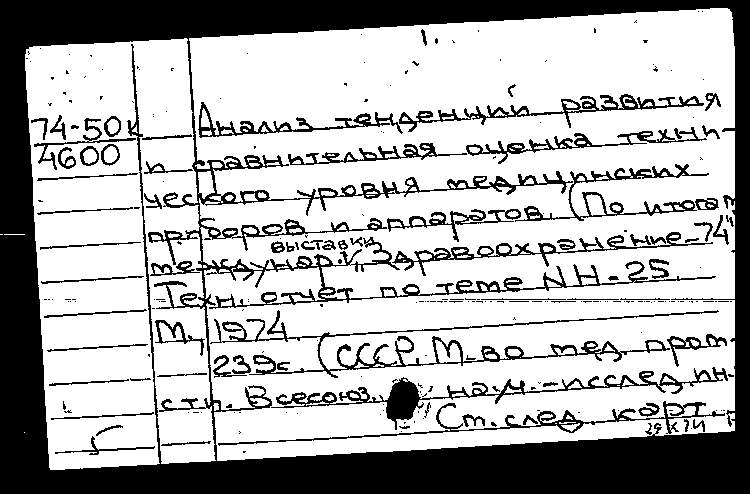 1.
74-50к Анализ тенденций развития
4600 и сравнительная оценка техни-
ческого уровня медицинских
приборов и аппаратов. (По итогам
выставки
междунар. „Здравоохранение-74"
Техн. отчет по теме NН-25.
М., 1974.
239с. (СССР. М-во мед. пром-
сти. Всесоюз. науч.-исслед. ин-
Ст. след. карт.
5